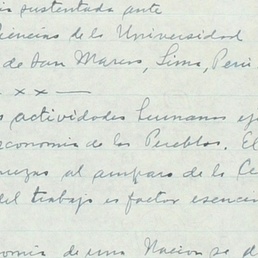 sustentada ante
Ciencias de la Universidad
de San Marcos, Lima, Perú
x x
actividades humanas
economía de los Pueblos. El
al amparo de la
del trabajo es factor
de una Nacion se